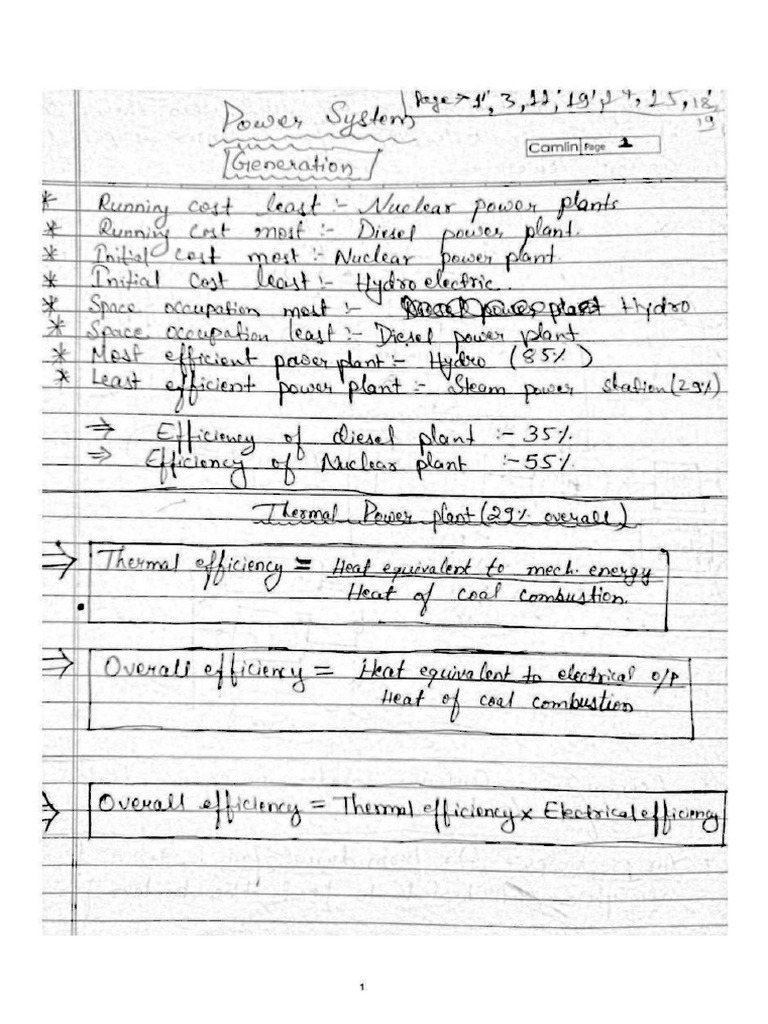 Page → 1', 3, 11', 19', 14, 15, 18'
19
Power System
Camlin Page 1
Generation
* Running cost least :- Nuclear power plants
* Running cost most :- Diesel power plant.
* Initial cost most :- Nuclear power plant
* Initial cost least :- Hydro electric.
* Space occupation most :- Hydro
* Space occupation least :- Diesel power plant
* Most efficient power plant :- Hydro (85%)
* Least efficient power plant :- Steam power station (29%)
⇒ Efficiency of diesel plant :- 35%.
⇒ Efficiency of Nuclear plant :- 55%.
Thermal Power plant (29% overall)
⇒ Thermal efficiency = Heat equivalent to mech. energy
Heat of coal combustion.
⇒ Overall efficiency = Heat equivalent to electrical o/p
Heat of coal combustion
⇒ Overall efficiency = Thermal efficiency x Electrical efficiency
1